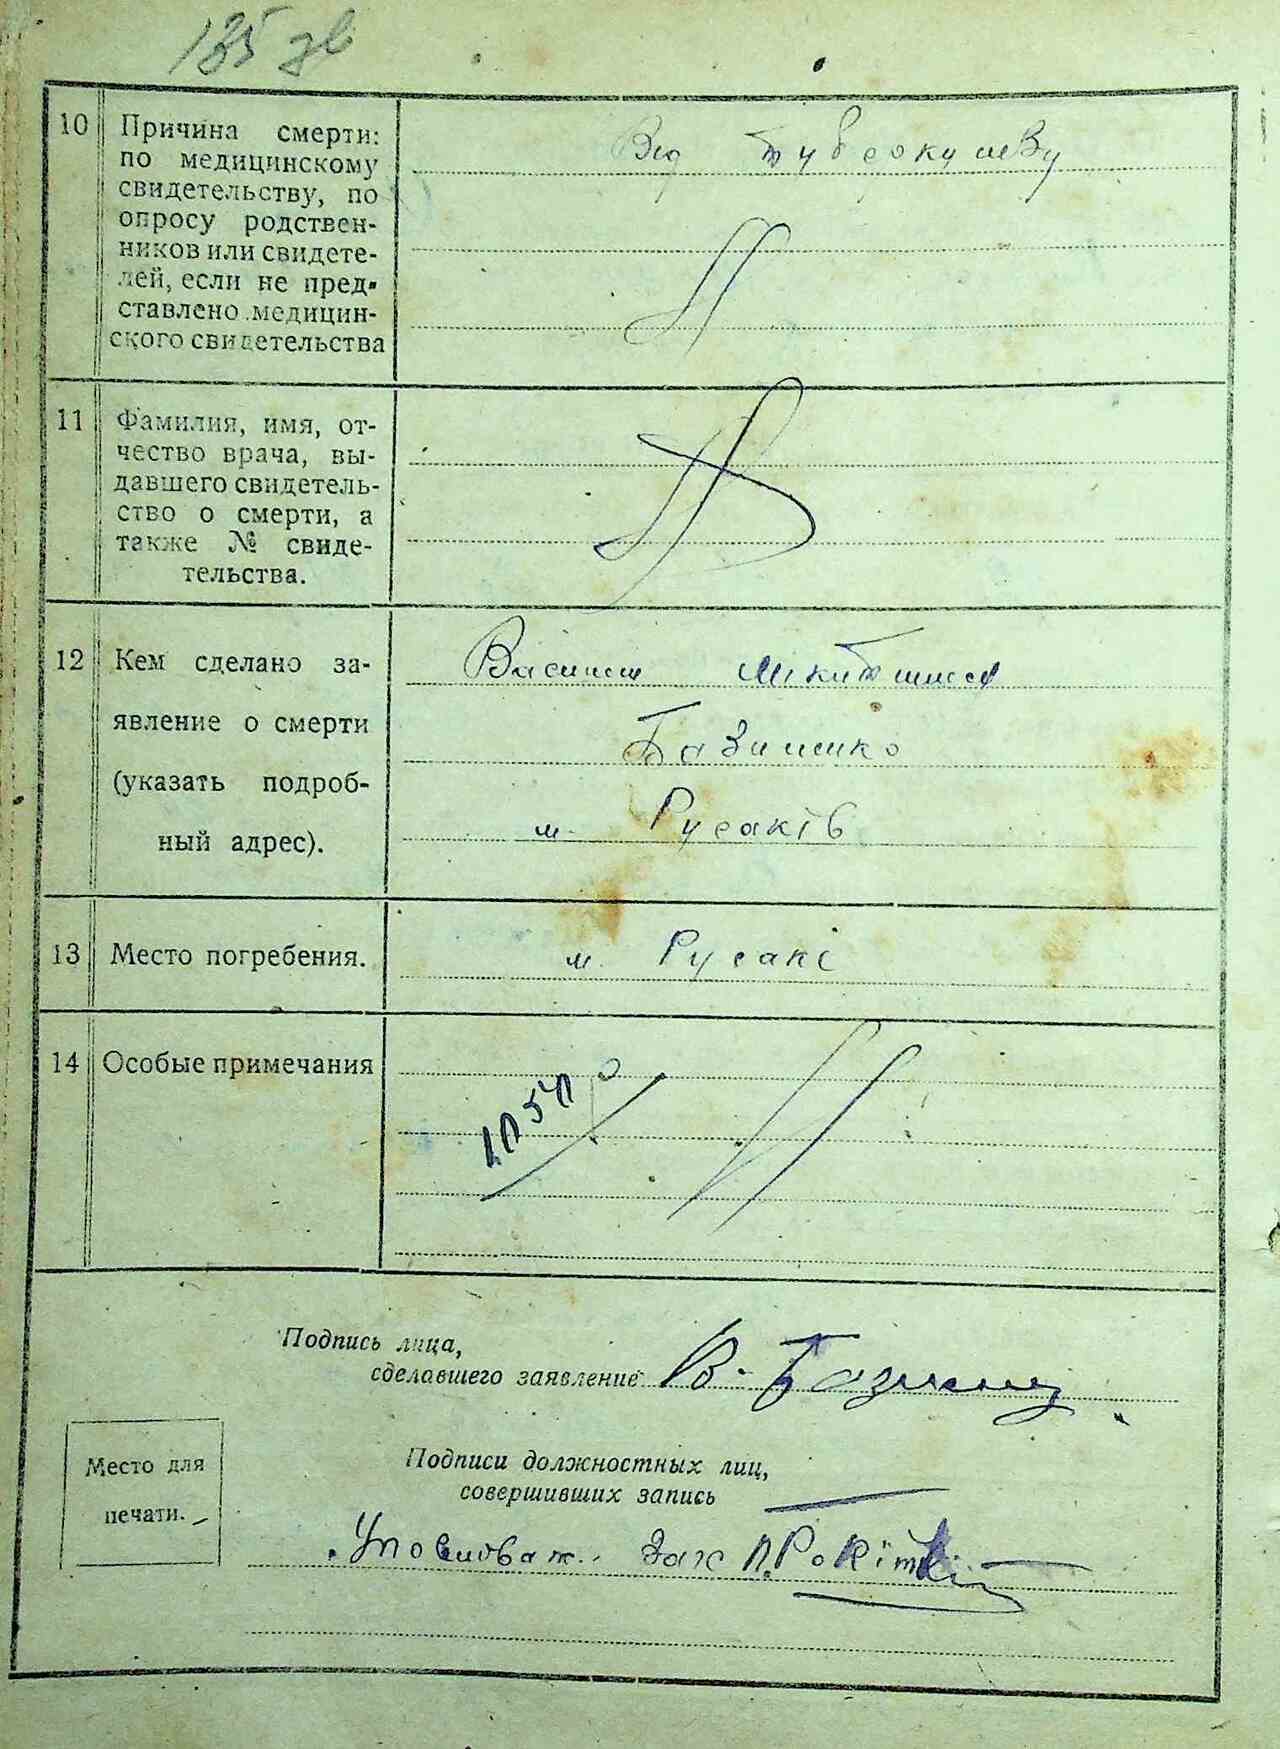 135 зв
10 Причина смерти:
по медицинскому
свидетельству, по
опросу родствен-
ников или свидете-
лей, если не пред-
ставлено медицин-
ского свидетельства
Від туберкульозу
11 Фамилия, имя, от-
чество врача, вы-
давшего свидетель-
ство о смерти, а
также № свиде-
тельства.
12 Кем сделано за-
явление о смерти
(указать подроб-
ный адрес).
Василь
м. Русаків
13 Место погребения.
м. Русакі
14 Особые примечания
Подпись лица,
сделавшего заявление
В.
Подписи должностных лиц,
совершивших запись
Место для
печати.